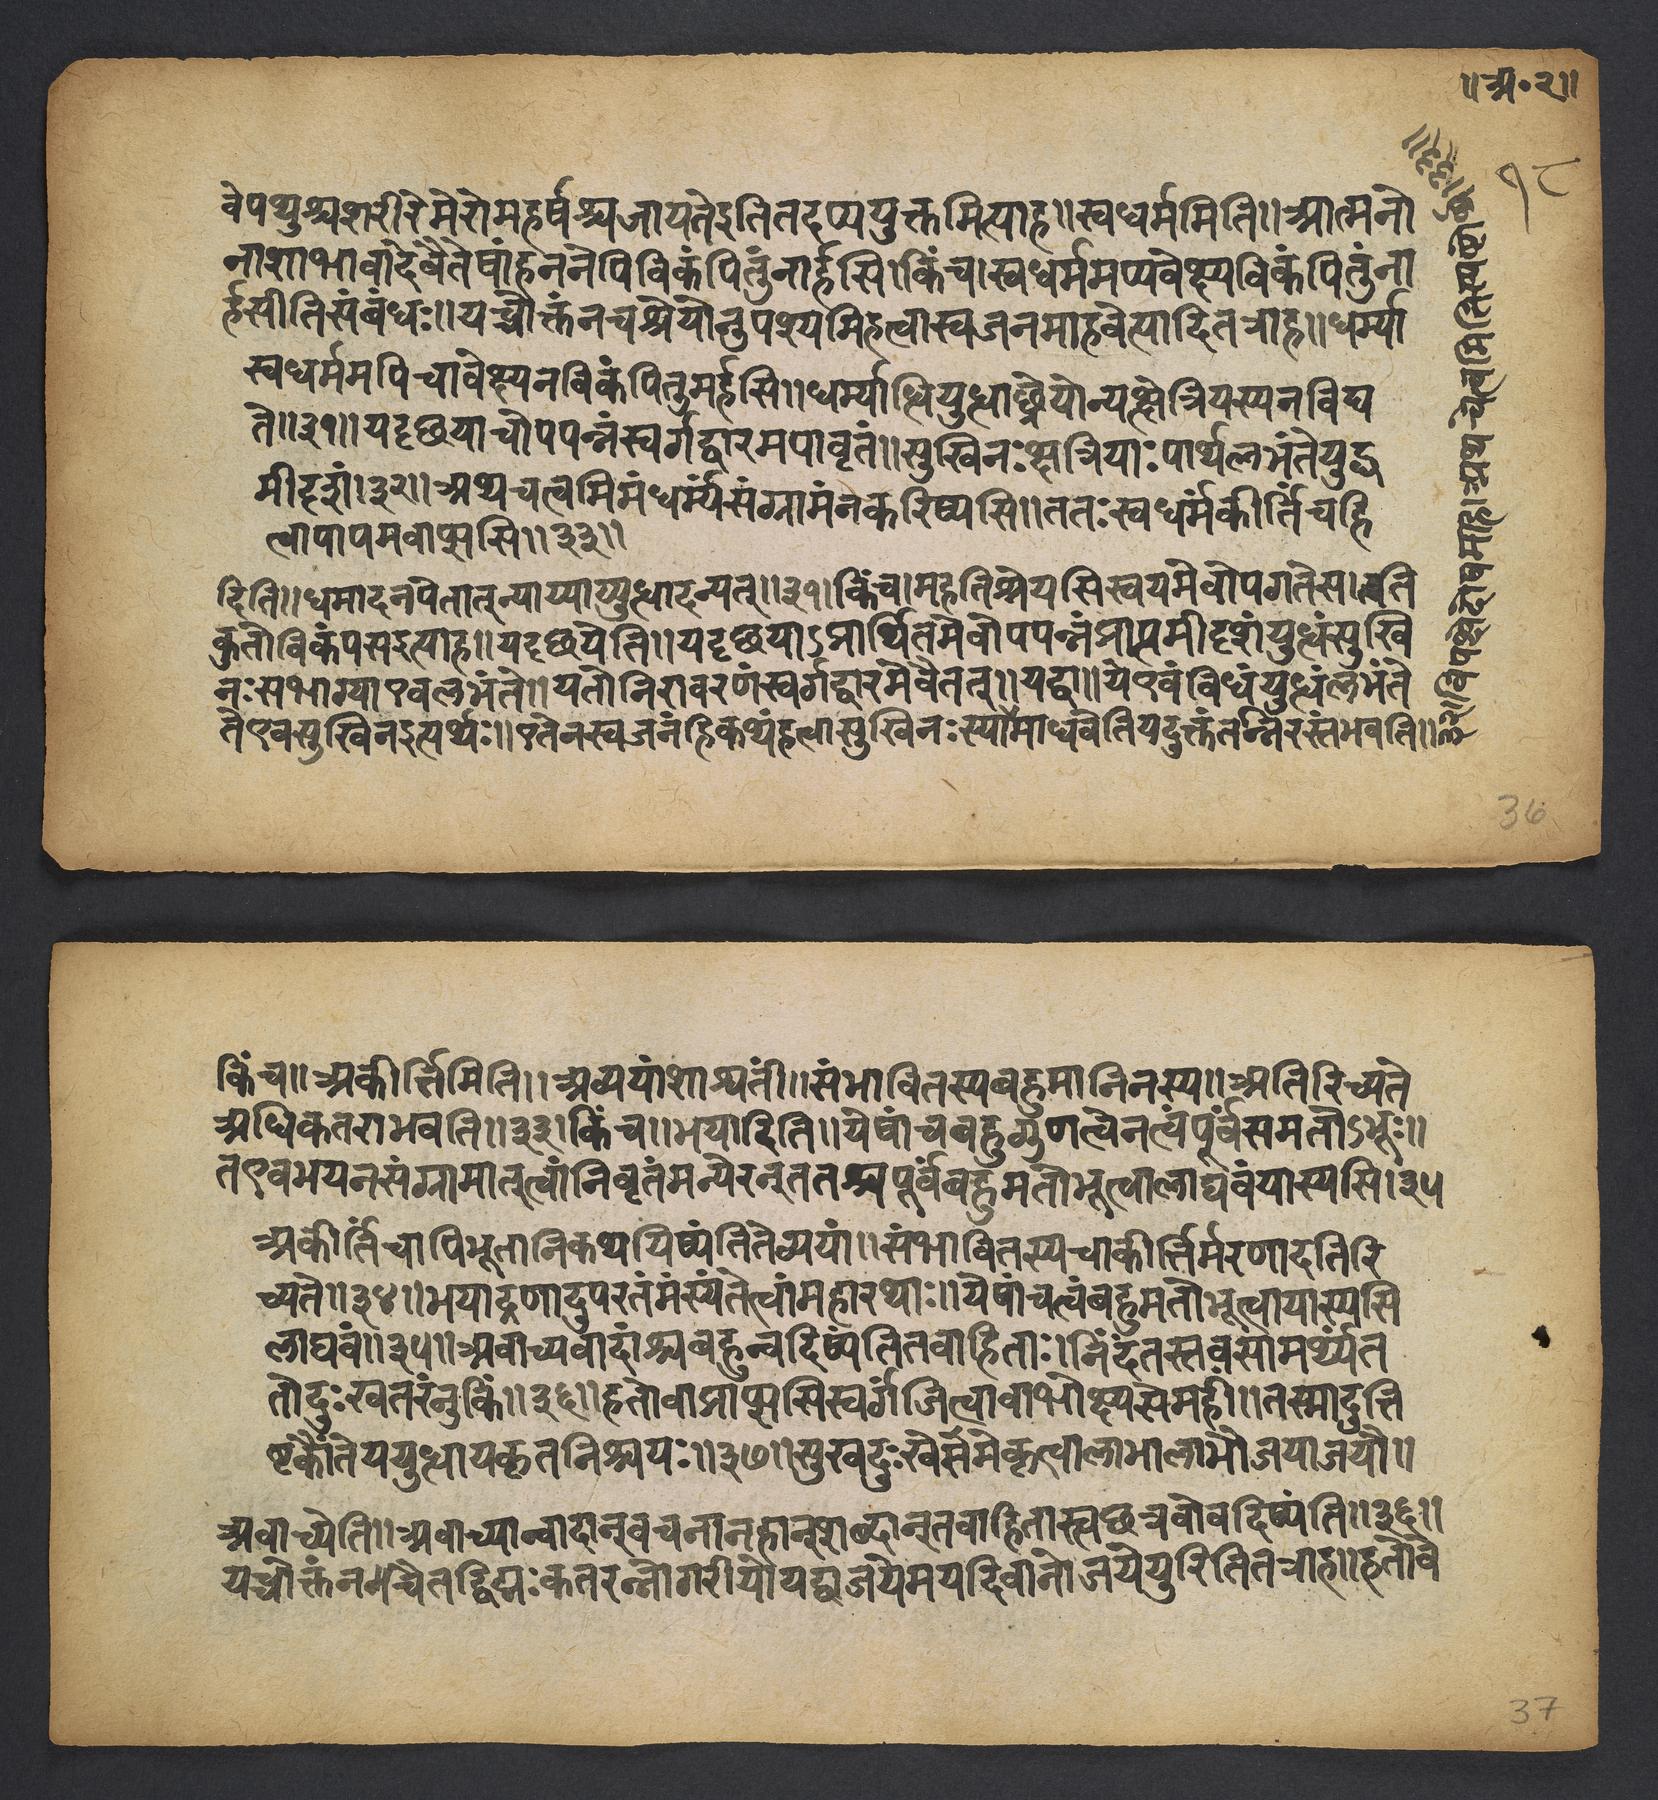 ॥अ॰२॥
१८
वेपथुश्चशरीरेमेरोमहर्षश्चजायतेइतितदप्ययुक्तमित्याह॥स्वधर्ममिति॥आत्मनो
नाशाभावादेवैतेषांहननेपिविकंपितुंनार्हसि।किंच।स्वधर्ममप्यवेक्ष्यविकंपितुंना
र्हसीतिसंबंधः॥यच्चोक्तंनचश्रेयोनुपश्यमिहत्वास्वजनमाहवेत्यादितत्राह॥धर्म्या
स्वधर्ममपिचावेक्ष्यनविकंपितुमर्हसि॥धर्म्याद्धियुद्धाछ्रेयोन्यत्क्षेत्रियस्यनविद्य
ते॥३१॥यदृछयाचोपपन्नंस्वर्गद्वारमपावृतं॥सुखिनःक्षत्रियाःपार्थलभंतेयुद्ध
मीदृशं।३२॥अथचत्वमिमंधर्म्यंसंग्रामंनकरिष्यसि॥ततःस्वधर्मंकीर्तिंचहि
त्वापापमवाप्स्यसि॥३३॥
दिति॥धमादनपेतात्न्याय्याय्युद्धादन्यत्॥३१।किंच।महतिश्रेयसिस्वयमेवोपगतेस।तति
कुतोविकंपसइत्याह॥यदृछयेति॥यदृछयाऽप्रार्थितमेवोपपन्नंप्राप्तमीदृशंयुद्धंसुखि
नःसभाग्याएवलभंते॥यतोनिरावरणंस्वर्गद्वारमेवैतत्॥यद्वा॥येएवंविधंयुद्धंलभंते
तेएवसुखिनइत्यर्थः॥एतेनस्वजनंहिकथंहत्वासुखिनःस्यामाधवेतियदुक्तंतन्निरस्तंभवति॥
३२।विपक्षेदोषमाह।अथचेत्वमितिस्पष्टोर्थः॥३३॥
36
किंच॥अकीर्त्तिमिति॥अव्ययांशाश्वतीं॥संभावितस्यबहुमानिनस्य॥अतिरिच्यते
अधिकतराभवति॥३३।किंच॥भयादिति॥येषांचबहुगुणत्वेनत्वंपूर्वंसमतोऽभूः॥
तएवभयनसंग्रामात्त्वांनिवृतंमन्येरन्ततश्चपूर्वंबहुमतोभूत्वालाघवंयास्यसि।३५
अकीर्तिंचापिभूतानिकथयिष्यंतितेव्ययां॥संभावितस्यचाकीर्त्तिर्मरणादतिरि
च्यते॥३४॥भयाद्रणादुपरतंमंस्यंतेत्वांमहारथाः॥येषांचत्वंबहुमतोभूत्वायास्यसि
लाघवं॥३५॥अवाच्यवादांश्चबहून्वदिष्यंतितवाहिताः।निंदंतस्तवसामर्थ्यंत
तोदुःखतरंनुकिं॥३६॥हतोवाप्राप्स्यसिस्वर्गंजित्वावाभोक्ष्यसेमहीं॥तस्मादुत्ति
ष्टकौंतेययुद्धायकृतनिश्चयः॥३७॥सुखदुःखेसमेकृत्वालाभालाभौजयाजयौ॥
अवाच्येति॥अवाच्यान्वादान्वचनानर्हान्शब्दान्तवाहितास्त्वछत्रवोवदिष्यंति॥३६॥
यच्चोक्तंनचैतद्विद्मःकतरन्नोगरीयोयद्वाजयेमयदिवानोजयेयुरितितत्राह॥हतोवे
37